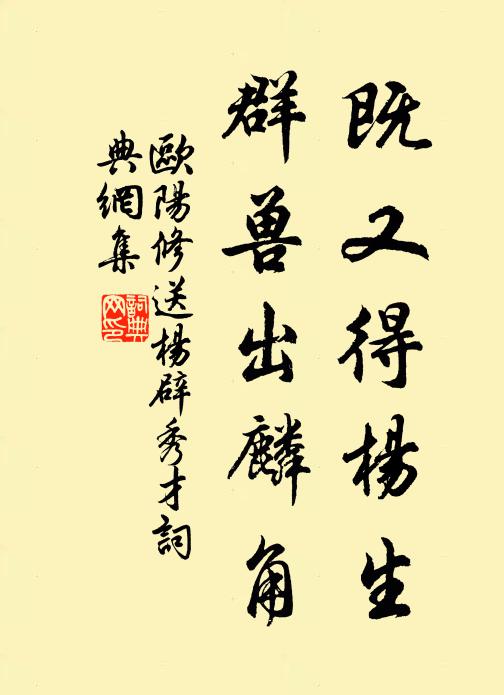 既又得楊生
群兽出麟角
歐陽修送楊辟秀才詞
典網集
詞典網印